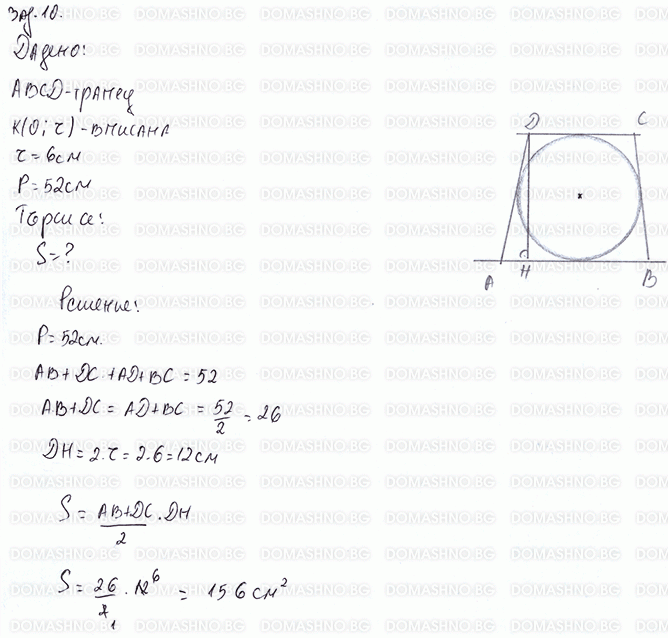 Зад.10.
Дадено:
ABCD-трапец
K(O; r) - вписана
r = 6см
P = 52см
Търси се:
S = ?
Решение:
P = 52см.
AB + DC + AD + BC = 52
AB + DC = AD + BC = 52/2 = 26
DH = 2.r = 2.6 = 12см
S = AB+DC/2 . DH
S = 26/2 1 . 12 6 = 156 см²
D C
A H B
DOMASHNO.BG